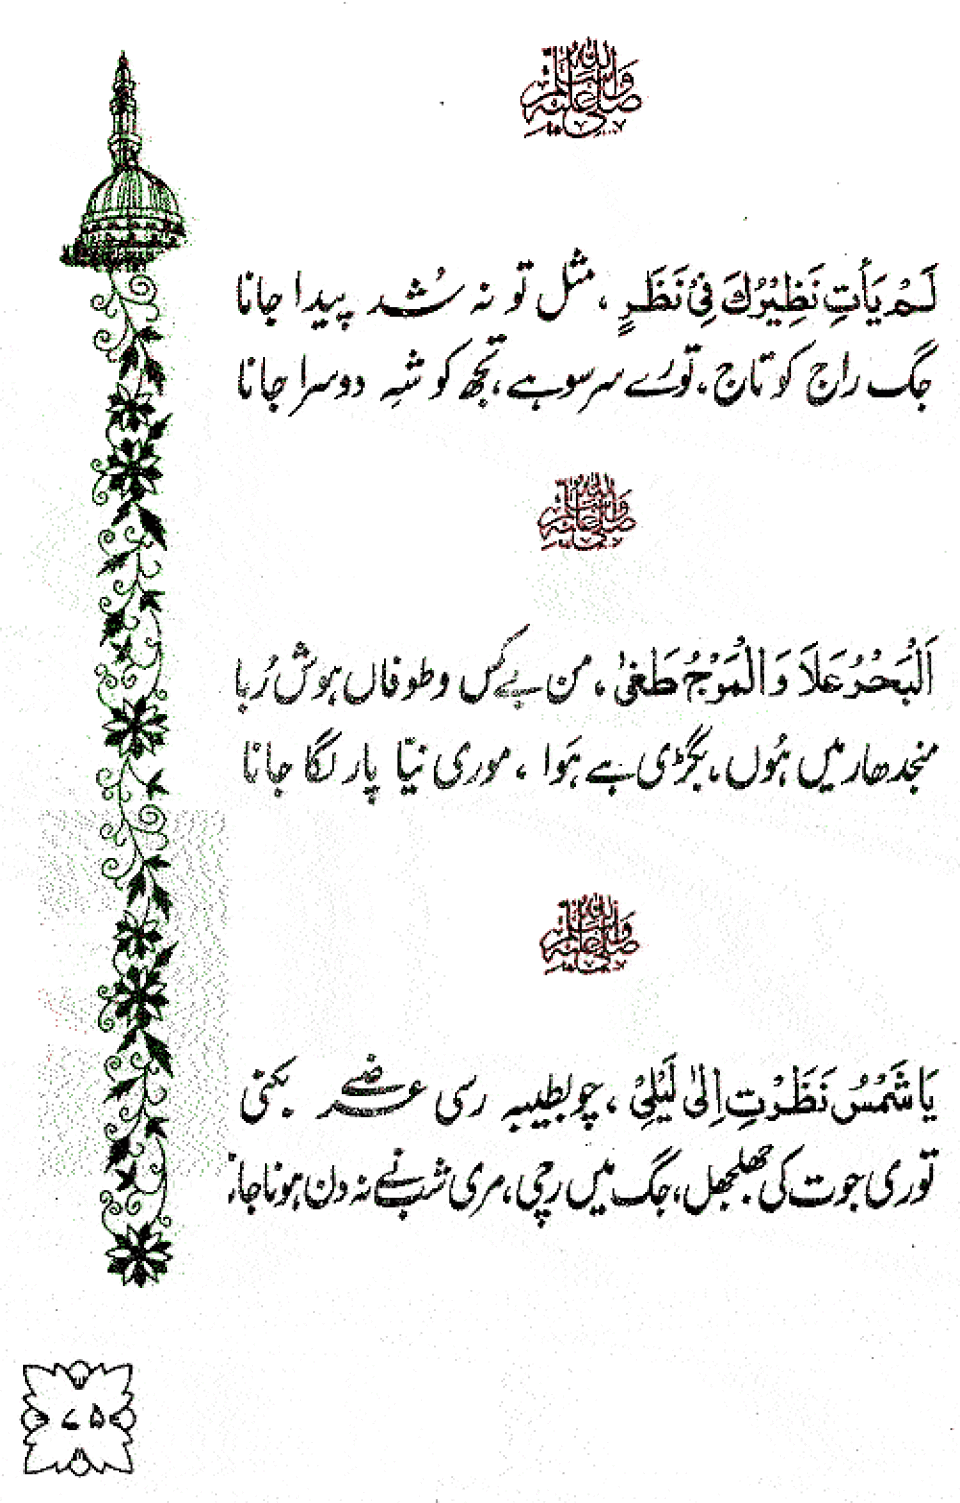 ﷺ
لَمْ یَأتِ نَظِیْرُكَ فِیْ نَظَرٍ ، مثل تو نہ شُد پیدا جانا
جگ راج کو تاج ، تورے سر سو ہے ، تجھ کو شہِ دوسرا جانا
ﷺ
اَلْبَحْرُ عَلَا وَالْمَوْجُ طَغیٰ ، من بے کس و طوفاں ہوش رُبا
منجدھار میں ہُوں ، بگڑی ہے ہَوا ، موری نیّا پار لگا جانا
ﷺ
یَا شَمْسُ نَظَرْتِ اِلیٰ لَیْلِیْ ، چو بطیبہ رسی عرضے بکنی
توری جوت کی جھلجھل ، جگ میں رچی ، مری شب نے نہ دن ہونا جانا
۷۵